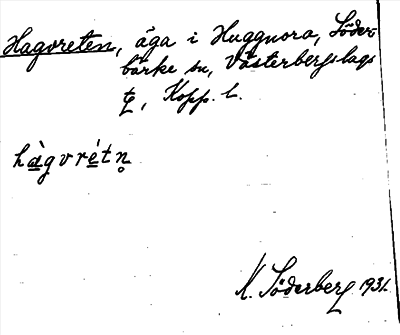 Hagvreten, äga i Huggnora, Söder-
bärke sn, Västerbergslags
tg, Kopp. l.
hàgvrétn̥
N. Söderberg 1931.